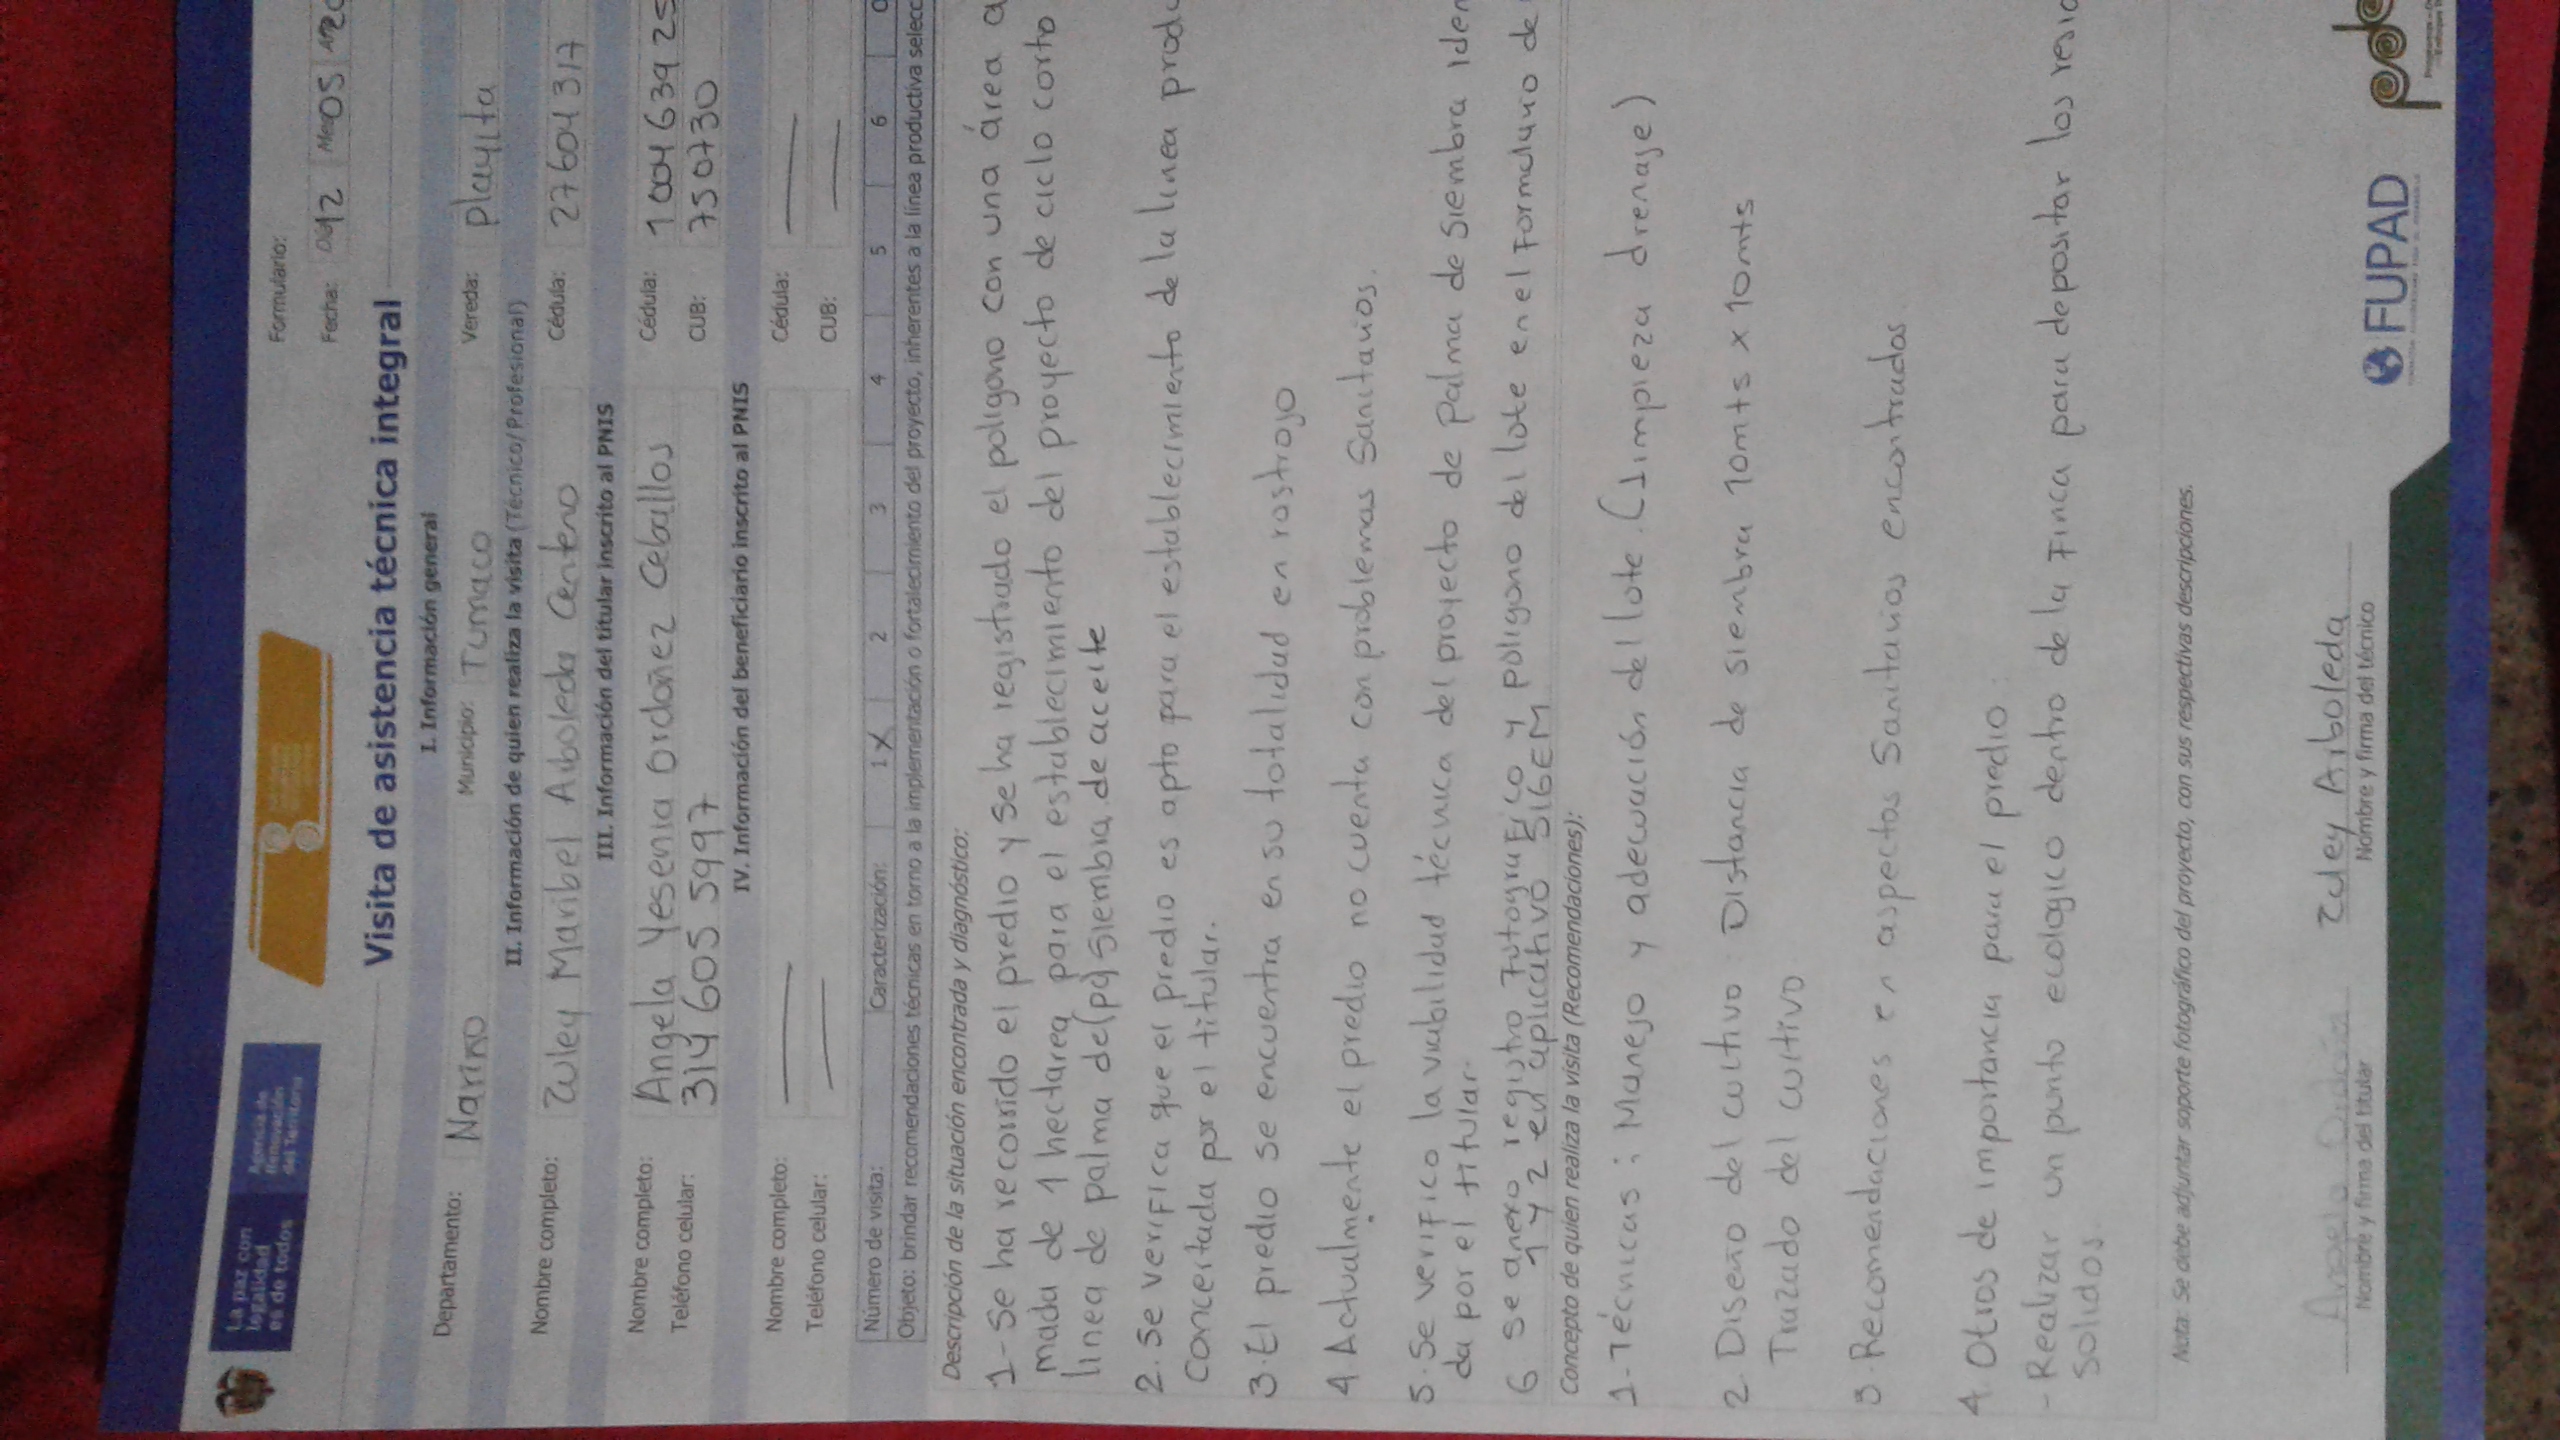 La paz con
legalidad
es de todos
Agencia de
Renovación
del Territorio
Formulario:
Fecha: Día 12 Mes 05 Año
Visita de asistencia técnica integral
I. Información general
Departamento: Nariño Municipio: Tumaco Vereda: playita
II. Información de quien realiza la visita (Técnico/Profesional)
Nombre completo: Zuley Maribel Arboleda Centeno Cédula: 27604317
III. Información del titular inscrito al PNIS
Nombre completo: Angela Yesenia Ordoñez Ceballos Cédula: 1004639 25
Teléfono celular: 314 605 5997 CUB: 750730
IV. Información del beneficiario inscrito al PNIS
Nombre completo: Cédula:
Teléfono celular: CUB:
Número de visita: Caracterización: 1 X 2 3 4 5 6
Objeto: brindar recomendaciones técnicas en torno a la implementación o fortalecimiento del proyecto, inherentes a la línea productiva selecc
Descripción de la situación encontrada y diagnóstico:
1- Se ha recorrido el predio y se ha registrado el poligono con una área a
mada de 1 hectarea, para el establecimiento del proyecto de ciclo corto
linea de palma de(pa) siembra de aceite
2. Se verifica que el predio es apto para el establecimiento de la linea produ
Concertada por el titular.
3. El predio se encuentra en su totalidad en rostrojo
4 Actualmente el predio no cuenta con problemas Sanitarios.
5. Se verifico la viabilidad técnica del proyecto de palma de siembra iden
da por el titular.
6 Se anexo registro Fotografico y poligono del lote en el Formulario de
1 y 2 en aplicativo SIGEM
Concepto de quien realiza la visita (Recomendaciones):
1- Técnicas: Manejo y adecuación del lote. (Limpieza drenaje)
2. Diseño del cultivo: Distancia de siembra 10mts x 10mts
Trazado del cultivo
3. Recomendaciones en aspectos Sanitarios encontrados.
4. Otros de importancia para el predio:
- Realizar un punto ecologico dentro de la Finca para depositar los resid
Solidos.
Nota: Se debe adjuntar soporte fotográfico del proyecto, con sus respectivas descripciones.
Angela Zuley Arboleda
Nombre y firma del titular Nombre y firma del técnico
FUPAD